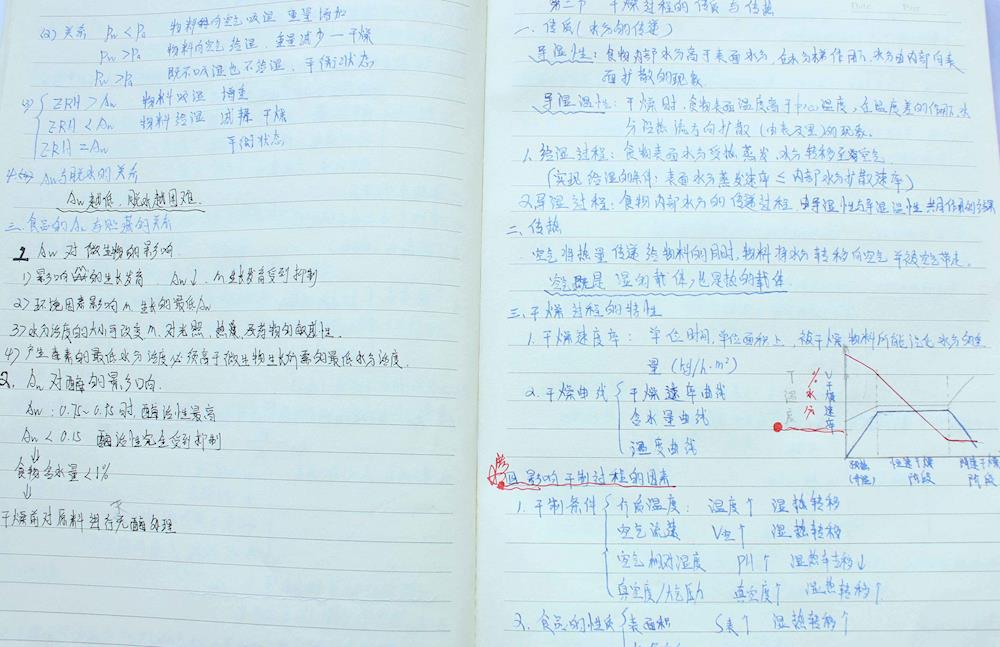 (2) 关系 Pw < Pa 物料在空气吸湿 重量增加
Pw > Pa 物料向空气给湿、重量减少—干燥
Pw > Pa 既不吸湿也不给湿、平衡状态
ERH > Aw 物料吸湿 增重
ERH < Aw 物料给湿 减轻 干燥
ERH = Aw 平衡状态
4. Aw与脱水的关系
Aw越低,脱水越困难.
三.食品的Aw与贮藏的关系
1. Aw 对微生物的影响
1) 影响的生长发育 Aw↓, m生长发育受到抑制
2) 环境因素影响 m 生长的最低Aw
3) 水分活度的大小可改变 m. 对光照、热藻及药物的敏感性.
4) 产生毒素的最低水分活度必须高于微生物生长所需的最低水分活度.
2. Aw 对酶的影响
Aw : 0.75~0.95时,酶活性最高
Aw < 0.15 酶活性完全受到抑制
↓
食物含水量<1%
↓
干燥前对原料进行灭酶处理
第二节 干燥过程的传质与传热
Date Page
一.传质(水分的传递)
导湿性:食物内部水分高于表面水分,在水分梯作用下,水分由内部向表
面扩散的现象
导湿温性:干燥时,食物表面温度高于中心温度,在温度差的作用下,水
分沿热流方向扩散(由表及里)的现象.
1.给湿过程:食物表面水分受热蒸发,水分转移至空气
(实现给湿的条件:表面水分蒸发速率 ≤ 内部水分扩散速率)
2.导湿过程:食物内部水分的传递过程.由导湿性与导湿温性共同作用的结果
二.传热
空气将热量传递给物料的同时,物料将水分转移向空气并被空气带走.
空气既是湿的载体,也是热的载体.
三.干燥过程的特性
1.干燥速度率: 单位时间,单位面积上,被干燥物料所能汽化水分的重
量 (kg/h·m²)
2.干燥曲线 干燥速率曲线
含水量曲线
温度曲线
T温度 %水分 V干燥速率
预热 恒速干燥 降速干燥
阶段 阶段
四.影响干制过程的因素
1.干制条件 介质温度: 温度↑ 湿热转移
空气流藻 V空↑ 湿热转移
空气相对湿度 PH↑ 湿热转移↓
真空度/大气压力 真空度↑ 湿热转移↑
2.食品的性质 表面积 S表↑ 湿热转移↑